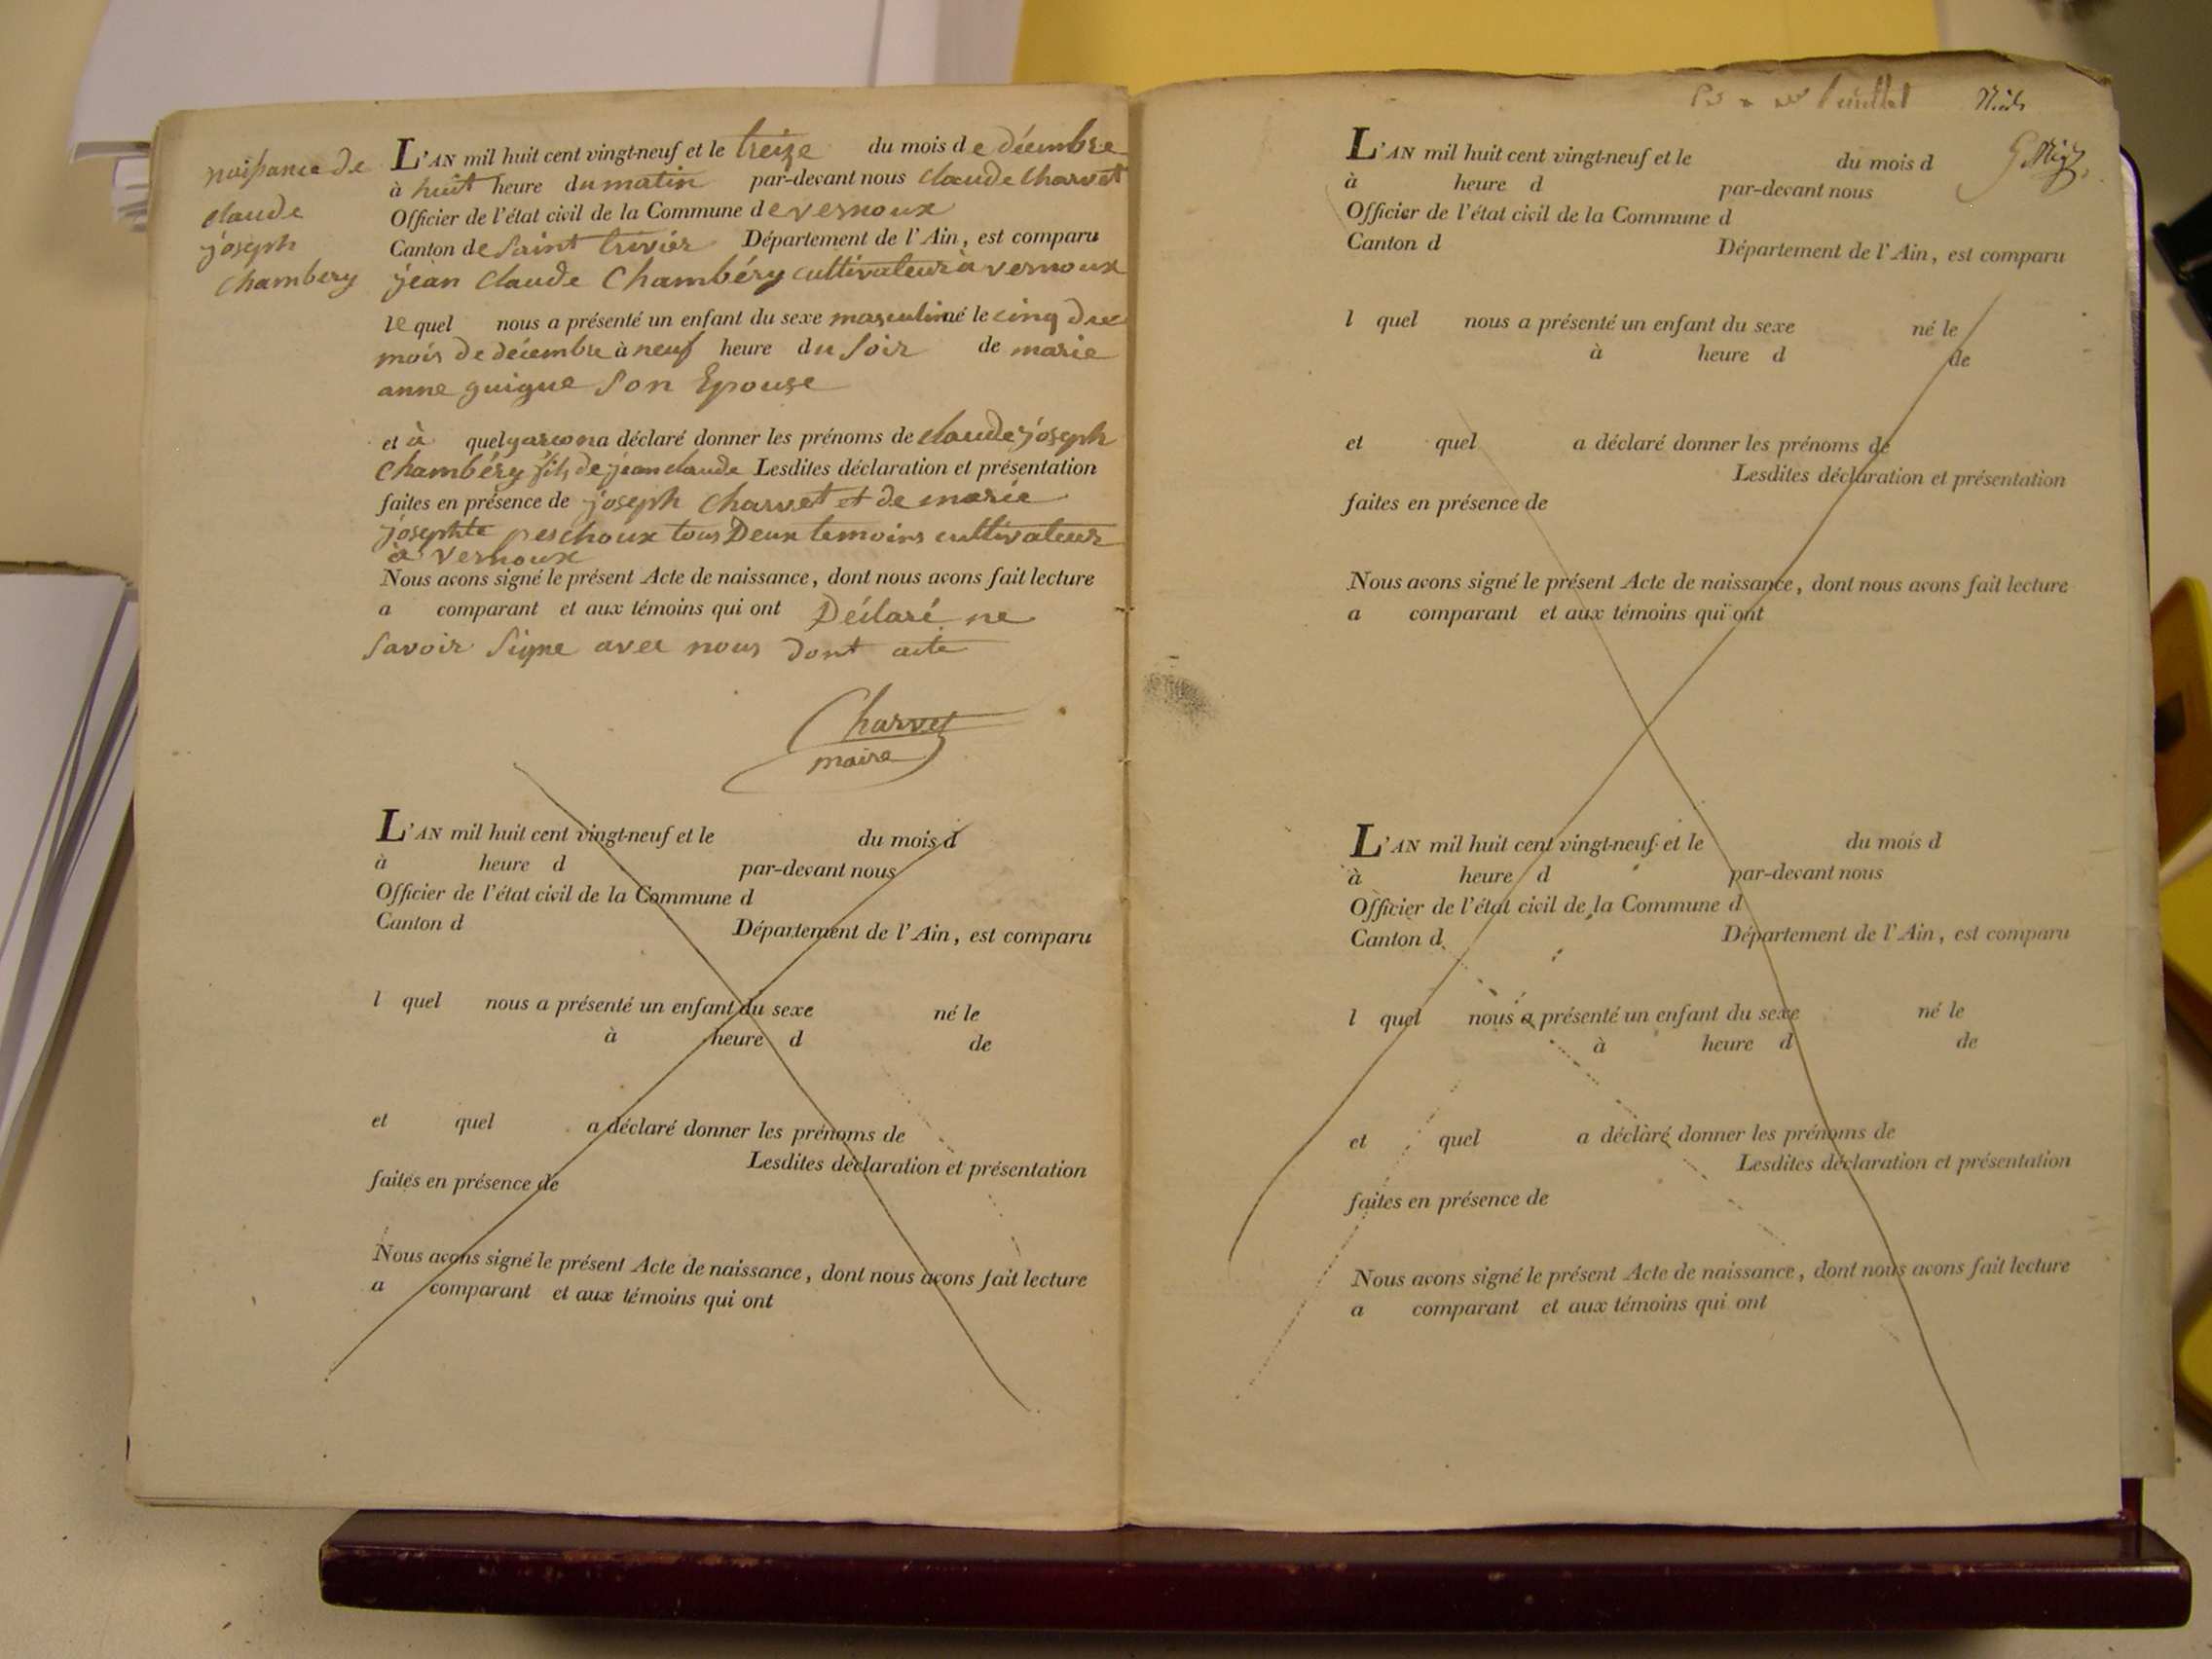 naissance de
claude
joseph
chambery
L'AN mil huit cent vingt-neuf et le treize du mois de décembre
à huit heure du matin par-devant nous claude charvet
Officier de l'état civil de la Commune de vernoux
Canton de saint trivier Département de l'Ain, est comparu
jean claude Chambéry cultivateur à vernoux
lequel nous a présenté un enfant du sexe masculin né le cinq du
mois de décembre à neuf heure du soir de marie
anne guigue son Epouse
et à quel garcon a déclaré donner les prénoms de claude joseph
Chambéry fils de jean claude Lesdites déclaration et présentation
faites en présence de joseph charvet et de marie
josephte peschoux tous Deux temoins cultivateur
à vernoux
Nous avons signé le présent Acte de naissance, dont nous avons fait lecture
a comparant et aux témoins qui ont Déclaré ne
savoir signe avec nous dont acte
Charvet
maire
L'AN mil huit cent vingt-neuf et le du mois d
à heure d par-devant nous
Officier de l'état civil de la Commune d
Canton d Département de l'Ain, est comparu
l quel nous a présenté un enfant du sexe né le
à heure d de
et quel a déclaré donner les prénoms de
Lesdites déclaration et présentation
faites en présence de
Nous avons signé le présent Acte de naissance, dont nous avons fait lecture
a comparant et aux témoins qui ont
feuillet
L'AN mil huit cent vingt-neuf et le du mois d
à heure d par-devant nous
Officier de l'état civil de la Commune d
Canton d Département de l'Ain, est comparu
l quel nous a présenté un enfant du sexe né le
à heure d de
et quel a déclaré donner les prénoms de
Lesdites déclaration et présentation
faites en présence de
Nous avons signé le présent Acte de naissance, dont nous avons fait lecture
a comparant et aux témoins qui ont
L'AN mil huit cent vingt-neuf et le du mois d
à heure d par-devant nous
Officier de l'état civil de la Commune d
Canton d Département de l'Ain, est comparu
l quel nous a présenté un enfant du sexe né le
à heure d de
et quel a déclaré donner les prénoms de
Lesdites déclaration et présentation
faites en présence de
Nous avons signé le présent Acte de naissance, dont nous avons fait lecture
a comparant et aux témoins qui ont